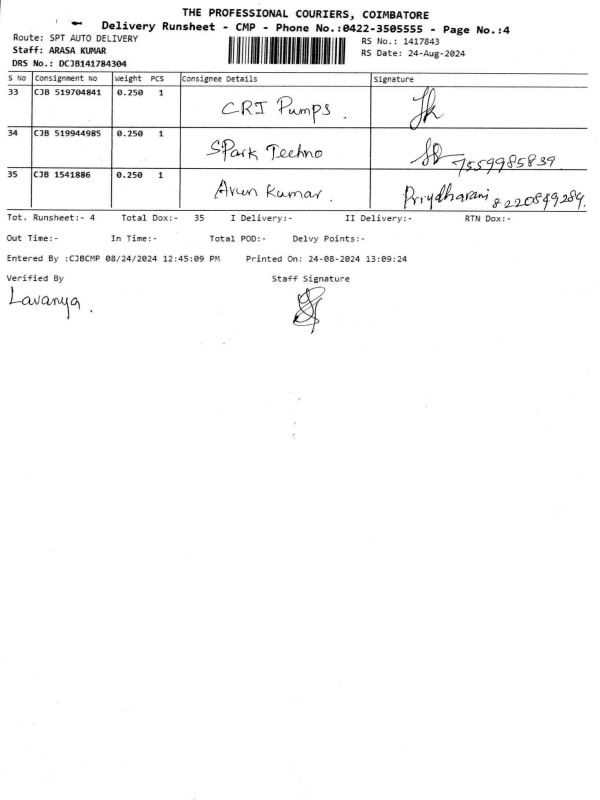 THE PROFESSIONAL COURIERS, COIMBATORE
Delivery Runsheet - CMP - Phone No.:0422-3505555 - Page No.:4
Route: SPT AUTO DELIVERY
RS No.: 1417843
Staff: ARASA KUMAR
RS Date: 24-Aug-2024
DRS No.: DCJB141784304
S No Consignment No Weight PCS Consignee Details Signature
33 CJB 519704841 0.250 1
CRI Pumps.
34 CJB 519944985 0.250 1
SPark Techno 7559985839
35 CJB 1541886 0.250 1
Arun Kumar. Priydharani 8220849289.
Tot. Runsheet:- 4 Total Dox:- 35 I Delivery:- II Delivery:- RTN Dox:-
Out Time:- In Time:- Total POD:- Delvy Points:-
Entered By :CJBCMP 08/24/2024 12:45:09 PM Printed On: 24-08-2024 13:09:24
Verified By Staff Signature
Lavanya.